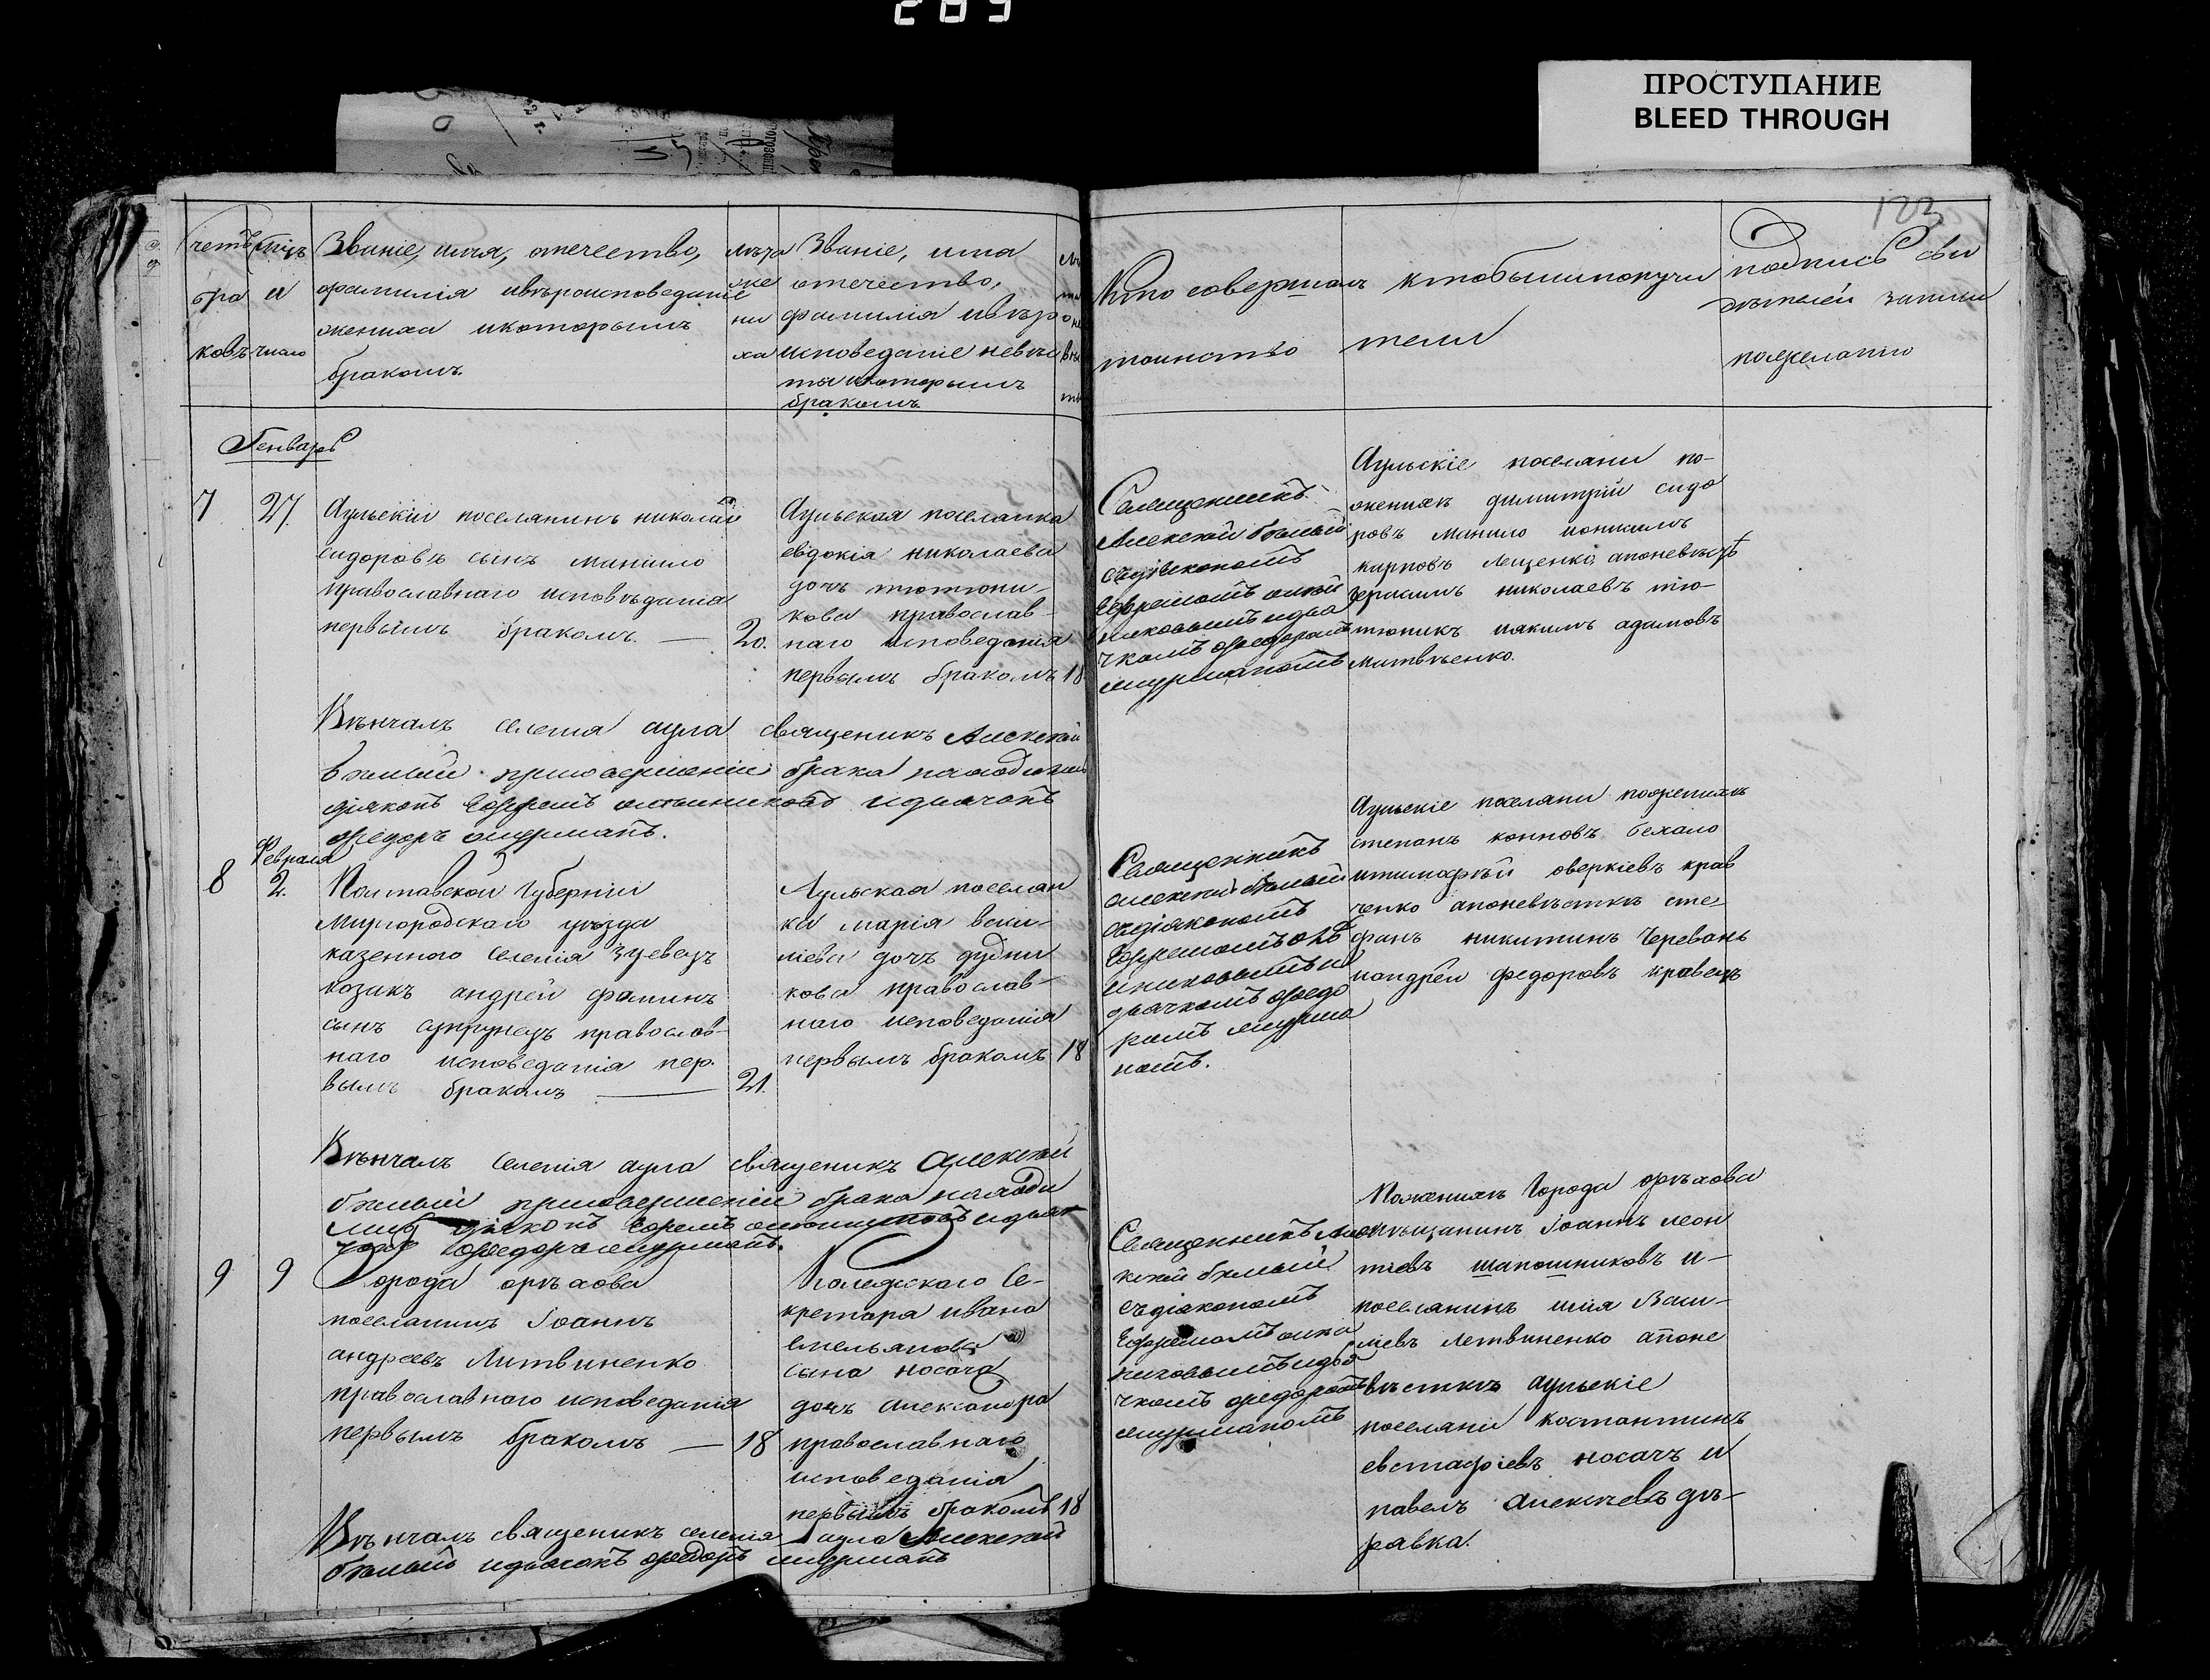 289
ПРОСТУПАНИЕ
BLEED THROUGH
123
Званіе, имя, отечество,
фамилія ивѣроисповеданіе
жениха икоторымъ
бракомъ
лѣта
же
ни
ха
Званіе, имя
отечество,
фамилія ивѣро
исповеданіе невѣс
ты икоторымъ
бракомъ
Кто совершалъ
таинство
ктобылипоручи
тели
подпись сви
дѣтелей записи
пожеланію
Генварь
7
27.
Аульскій поселянинъ николай
сидоровъ сынъ манило
православнаго исповѣданія
первымъ бракомъ. — 20.
Аульская поселянка
евдокія николаева
дочь тютюни-
кова православ-
наго исповеданія
первымъ бракомъ 18
Священникъ
Алексѣй бѣлый
съдіякономъ
чкомъ федоромъ
Аульскіе поселяни по-
женихѣ димитрій сидо
ровъ манило
карповъ Лещенко, апоневѣстѣ
герасимъ николаевъ тю-
тюникъ иакимъ адамовъ
матвѣенко.
Вѣнчалъ селенія аула священикъ Алексѣй
бѣлый присовершеніи брака находились
діяконъ Ефремъ идьячокъ
федоръ
Февраля
8
2.
Полтавской губерніи
Миргородскаго уѣзда
казеннаго селенія Зуевецъ
козакъ андрей фоминъ
сынъ супрунецъ православ-
наго исповеданія пер-
вымъ бракомъ — 21.
Аульская поселян
ка марія васи-
ліева дочь дудни
кова православ-
наго исповеданія
первымъ бракомъ 18
Священникъ
алексѣй бѣлый
съдіякономъ
дьячкомъ федо
ромъ
номъ.
Аульскіе поселяни поженихѣ
степанъ коновъ бехало
итимофѣй оверкіевъ крав
ченко апоневѣстѣ сте-
фанъ никитинъ Черевань
иандрей федоровъ кравецъ
Вѣнчалъ селенія аула священикъ Алексѣй
бѣлый присовершеніи брака находи
лись діяконъ Ефремъ идьяч
федоръ
9
9
Города орѣхова
поселянинъ Іоаннъ
андреевъ Литвиненко
православнаго исповеданія
первымъ бракомъ — 18
Колежскаго Се-
кретаря ивана
емельянова
сына носача
дочь Александра
православнаго
исповеданія
первымъ бракомъ 18
Священникъ Але
ксѣй бѣлый
съдіякономъ
чкомъ федоромъ
Поженихѣ города орѣхова
мѣщанинъ Іоаннъ леон
тіевъ шапошниковъ и-
поселянинъ илія Васи-
ліевъ Летвиненко апоне
вѣстѣ аульскіе
поселяни костантинъ
евстафіевъ носачъ и
павелъ Алексѣевъ дѣ-
равка.
Вѣнчалъ священикъ селенія аула Алексѣй
бѣлый идьячокъ федоръ